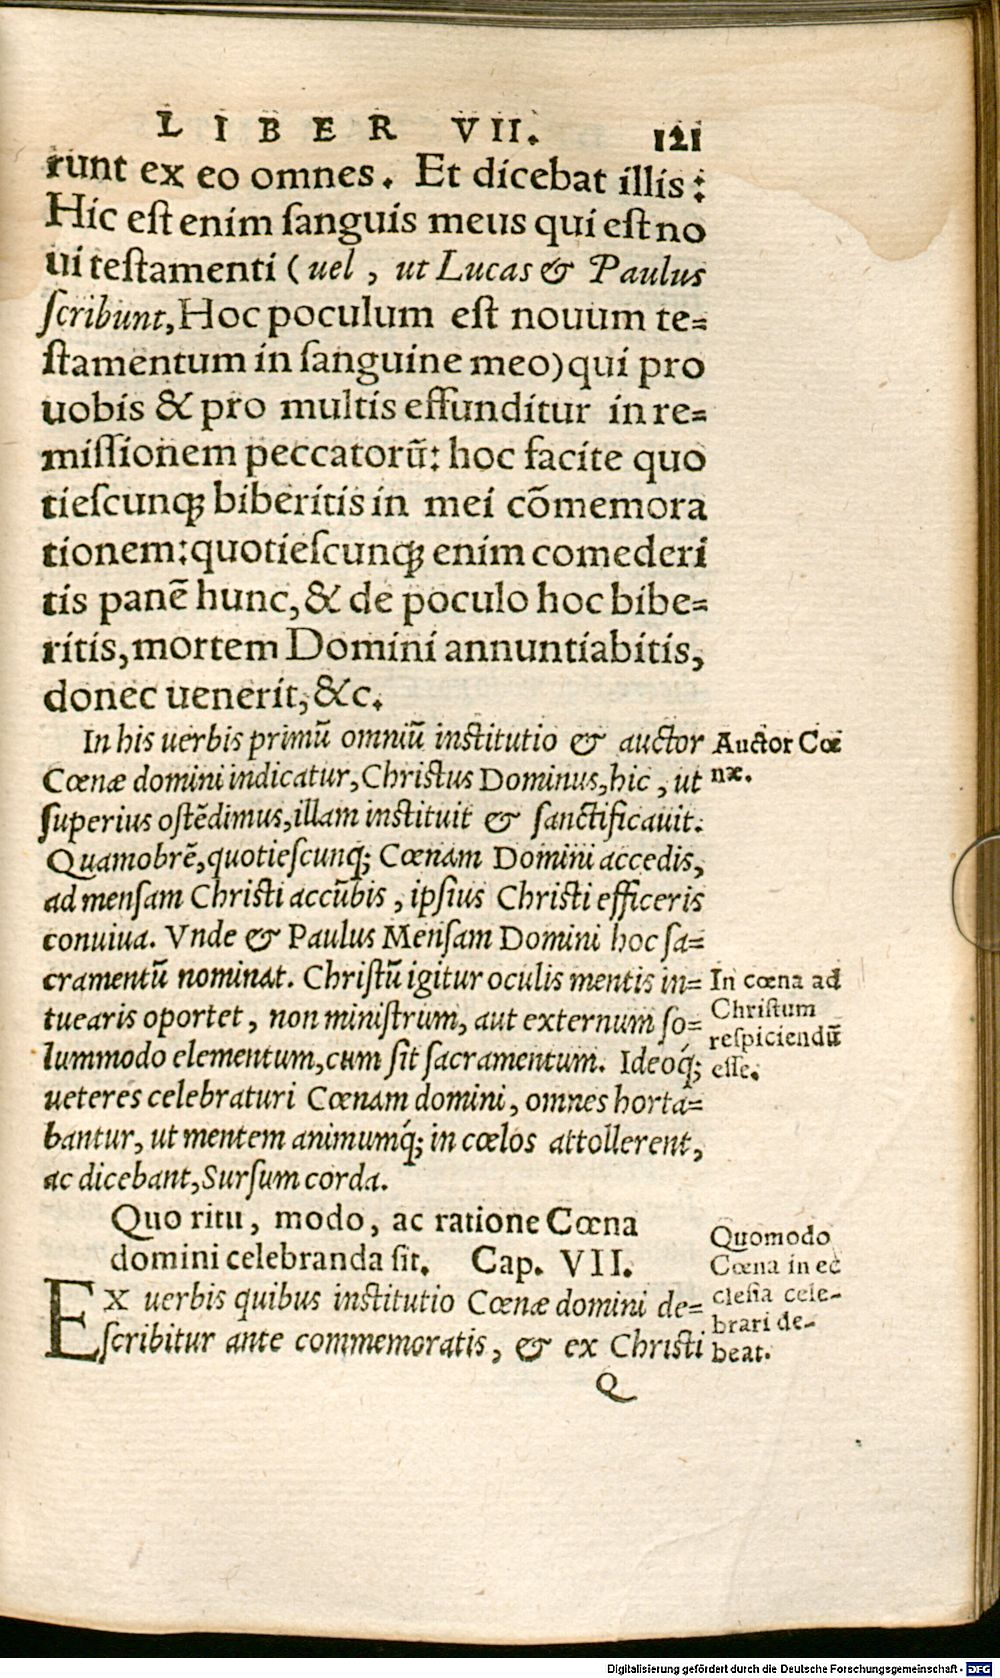 LIBER VII. 121
runt ex eo omnes. Et dicebat illis:
Hic eſt enim ſanguis meus qui eſt no
ui teſtamenti (uel, ut Lucas & Paulus
ſcribunt, Hoc poculum eſt nouum te=
ſtamentum in ſanguine meo) qui pro
uobis & pro multis effunditur in re=
miſſionem peccatorũ: hoc facite quo
tieſcunqꝫ biberitis in mei cõmemora
tionem: quotieſcunqꝫ enim comederi
tis panẽ hunc, & de poculo hoc bibe=
ritis, mortem Domini annuntiabitis,
donec uenerit, &c.
In his uerbis primũ omniũ inſtitutio & auctor
Cœnæ domini indicatur, Chriſtus Dominus, hic, ut
ſuperius oſtẽdimus, illam inſtituit & ſanctificauit.
Quamobrẽ, quotieſcunqꝫ Cœnam Domini accedis,
ad menſam Chriſti accũbis, ipſius Chriſti efficeris
conuiua. Vnde & Paulus Menſam Domini hoc ſa=
cramentũ nominat. Chriſtũ igitur oculis mentis in=
tuearis oportet, non miniſtrum, aut externum ſo=
lummodo elementum, cum ſit ſacramentum. Ideoq́ꝫ
ueteres celebraturi Cœnam domini, omnes horta=
bantur, ut mentem animumq́ꝫ in cœlos attollerent,
ac dicebant, Surſum corda.
Auctor Cœ
næ.
In cœna ad
Chriſtum
reſpiciendũ
eſſe.
Quo ritu, modo, ac ratione Cœna
domini celebranda ſit. Cap. VII.
EX uerbis quibus inſtitutio Cœnæ domini de=
ſcribitur ante commemoratis, & ex Chriſti
Quomodo
Cœna in ec
cleſia cele-
brari de-
beat.
Q
Digitalisierung gefördert durch die Deutsche Forschungsgemeinschaft - DFG